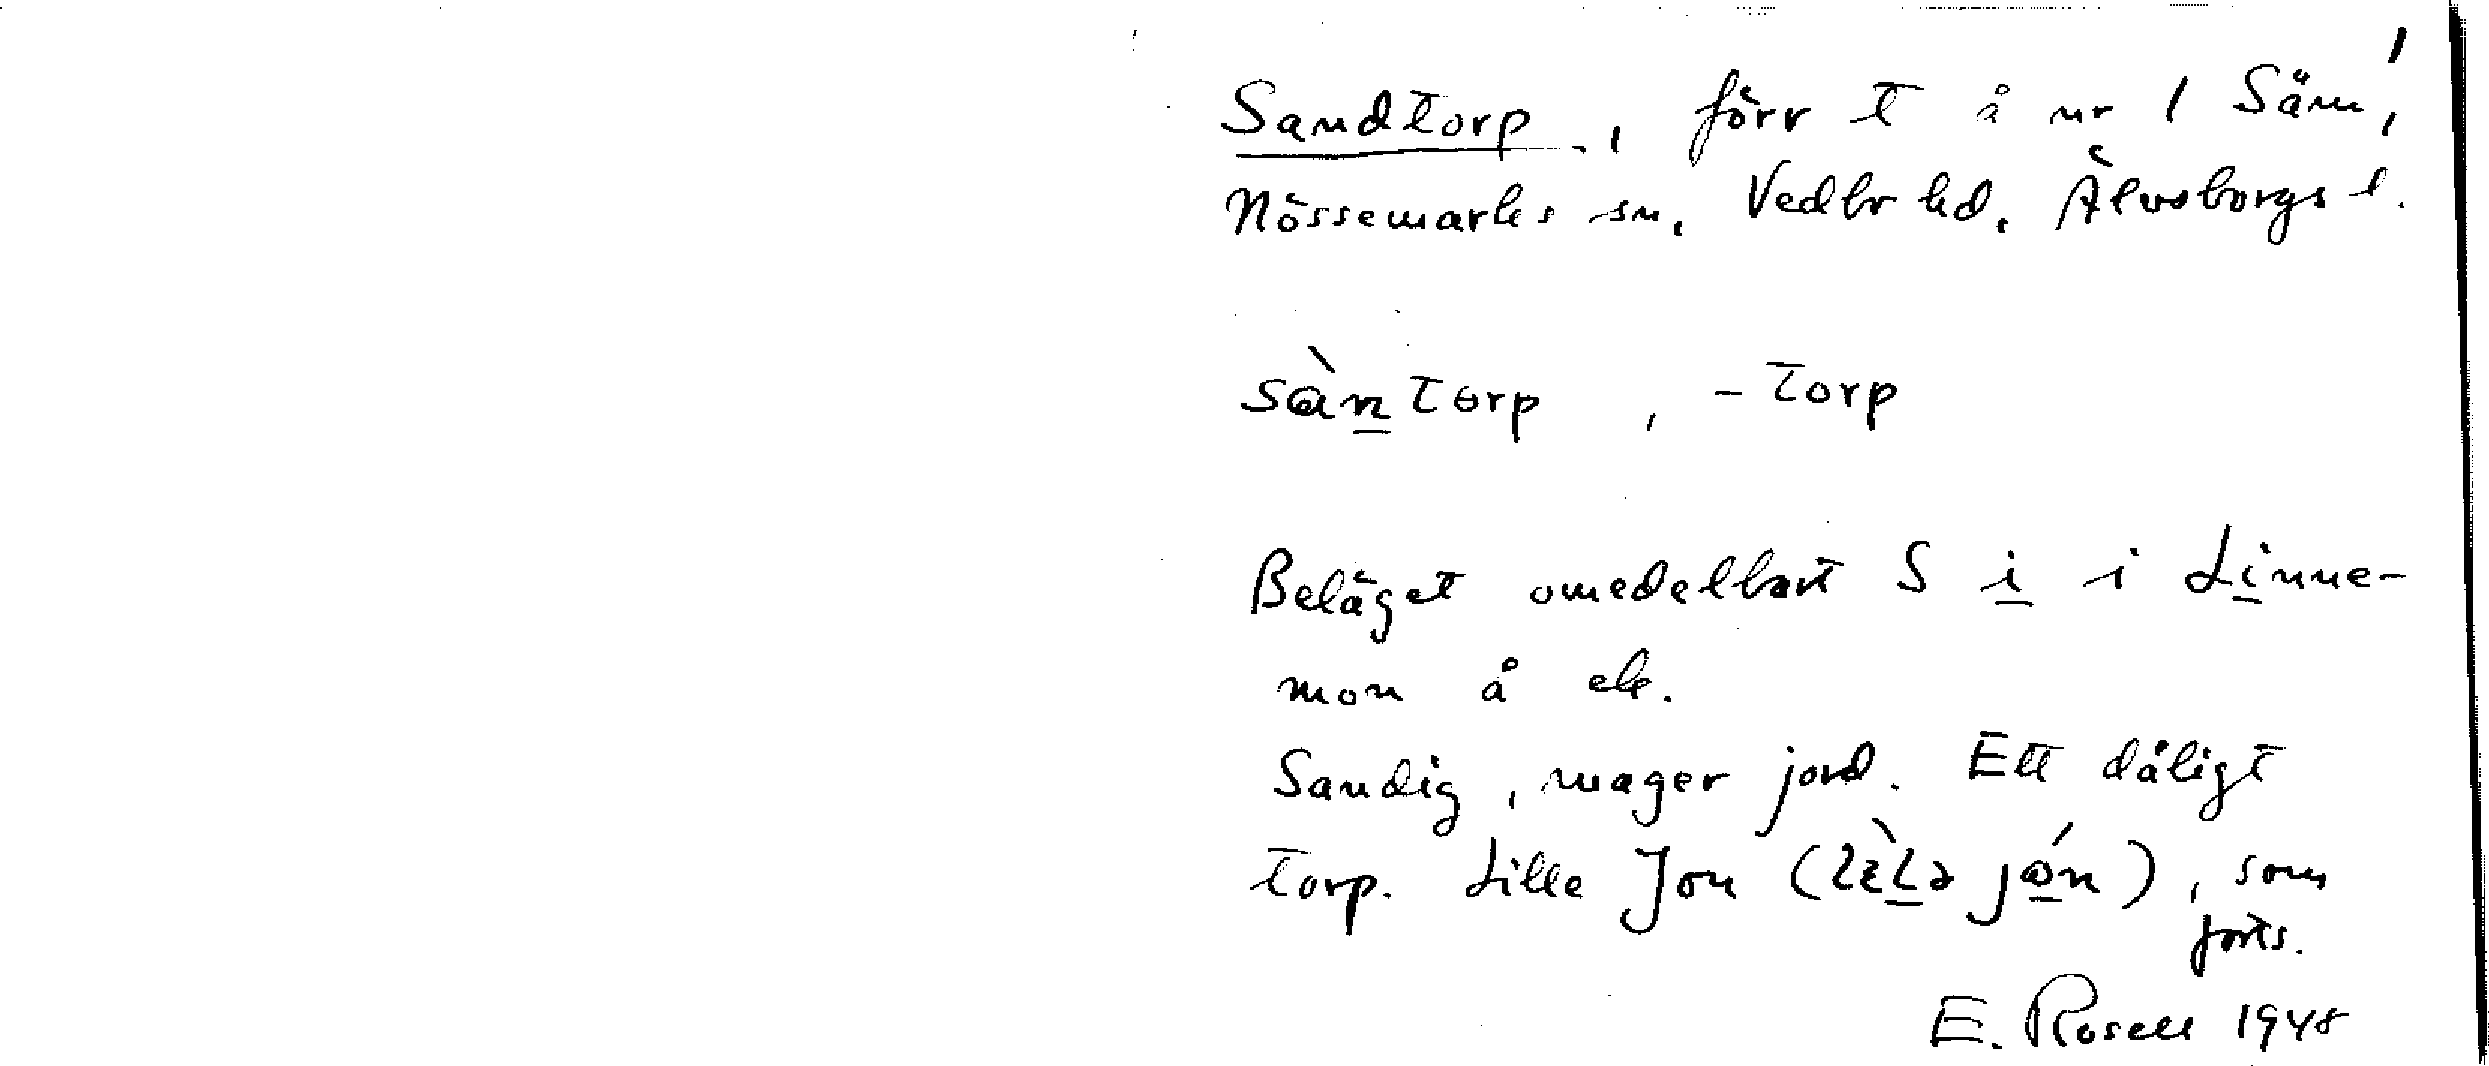 1
Sandtorp, förr t å nr 1 Säm,
Nössemarks sn, Vedbo hd, Älvsborgs l.
sàntorp, -torp
Beläget omedelbart S i i Linne-
mon å ek.
Sandig, mager jord. Ett dåligt
torp. Lille Jon (lèlə jón), som
forts.
E. Rosell 1948